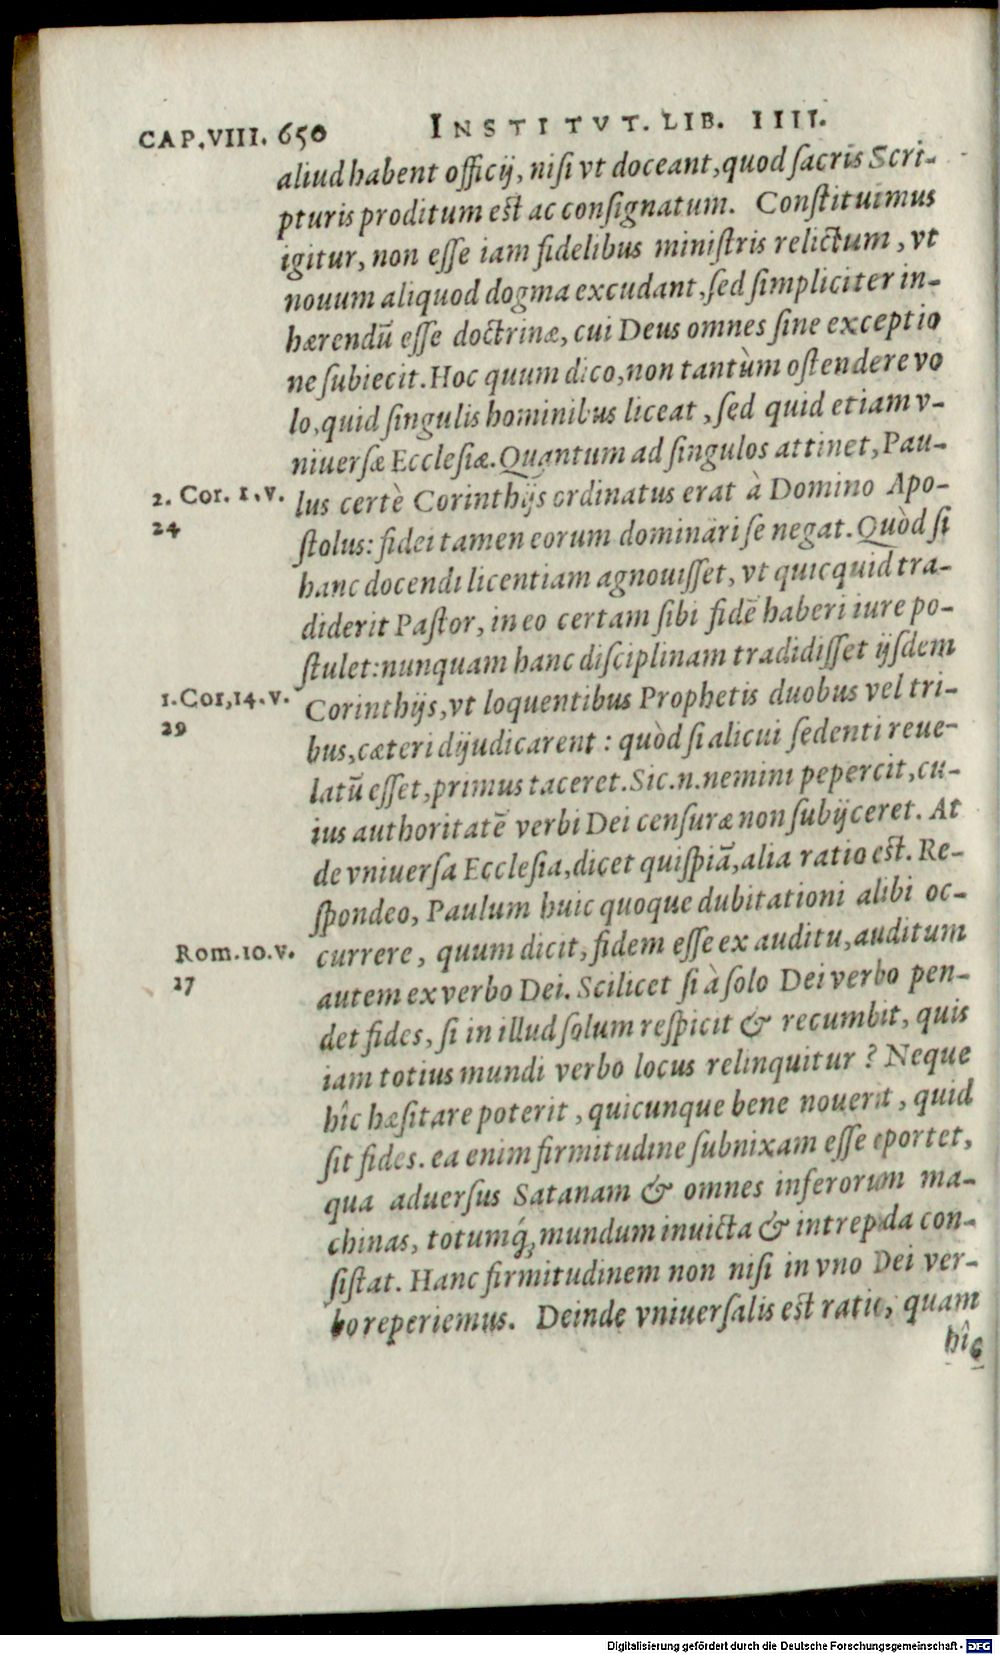 CAP.VIII. 650 INSTITVT. LIB. IIII.
aliud habent officij, niſi vt doceant, quod ſacris Scri-
pturis proditum eſt ac conſignatum. Conſtituimus
igitur, non eſſe iam fidelibus miniſtris relictum, vt
nouum aliquod dogma excudant, ſed ſimpliciter in-
hærendũ eſſe doctrinæ, cui Deus omnes ſine exceptio
ne ſubiecit. Hoc quum dico, non tantùm oſtendere vo
lo, quid ſingulis hominibus liceat, ſed quid etiam v-
niuerſæ Eccleſiæ. Quantum ad ſingulos attinet, Pau-
2. Cor. 1. v.
24
lus certè Corinthijs ordinatus erat à Domino Apo-
ſtolus: fidei tamen eorum dominari ſe negat. Quòd ſi
hanc docendi licentiam agnouiſſet, vt quicquid tra-
diderit Paſtor, in eo certam ſibi fidẽ haberi iure po-
ſtulet: nunquam hanc diſciplinam tradidiſſet ijſdem
1. Cor, 14. v.
29
Corinthijs, vt loquentibus Prophetis duobus vel tri-
bus, cæteri dijudicarent: quòd ſi alicui ſedenti reue-
latũ eſſet, primus taceret. Sic.n. nemini pepercit, cu-
ius authoritatẽ verbi Dei cenſuræ non ſubijceret. At
de vniuerſa Eccleſia, dicet quiſpiã, alia ratio eſt. Re-
ſpondeo, Paulum huic quoque dubitationi alibi oc-
Rom. 10. v.
17
currere, quum dicit, fidem eſſe ex auditu, auditum
autem ex verbo Dei. Scilicet ſi à ſolo Dei verbo pen-
det fides, ſi in illud ſolum reſpicit & recumbit, quis
iam totius mundi verbo locus relinquitur? Neque
hîc hæſitare poterit, quicunque bene nouerit, quid
ſit fides. ea enim firmitudine ſubnixam eſſe oportet,
qua aduerſus Satanam & omnes inferorum ma-
chinas, totumq́; mundum inuicta & intrepida con-
ſiſtat. Hanc firmitudinem non niſi in vno Dei ver-
bo reperiemus. Deinde vniuerſalis eſt ratio, quam
hîc
Digitalisierung gefördert durch die Deutsche Forschungsgemeinschaft - DFG